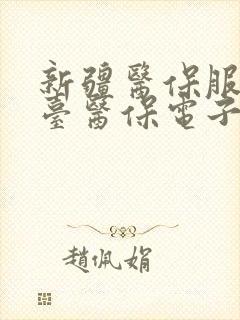 新疆醫保服
臺醫保電子
趙佩娟